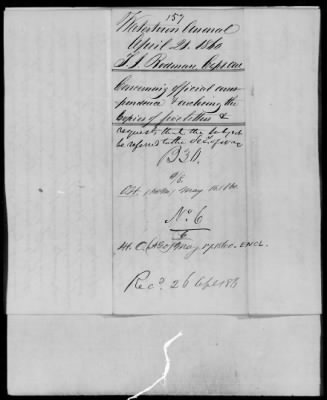 157
Watertown Arsenal
April 21. 1860
T. J. Rodman, Capt. Ord
Concerning official corres-
pondence & enclosing the
Copies of five letters &
requests that the subject
be referred to the Sec. of War
B 30.
May 16. 1860.
No. 6
May 17, 1860. ENCL.
Recd. 26 Apl